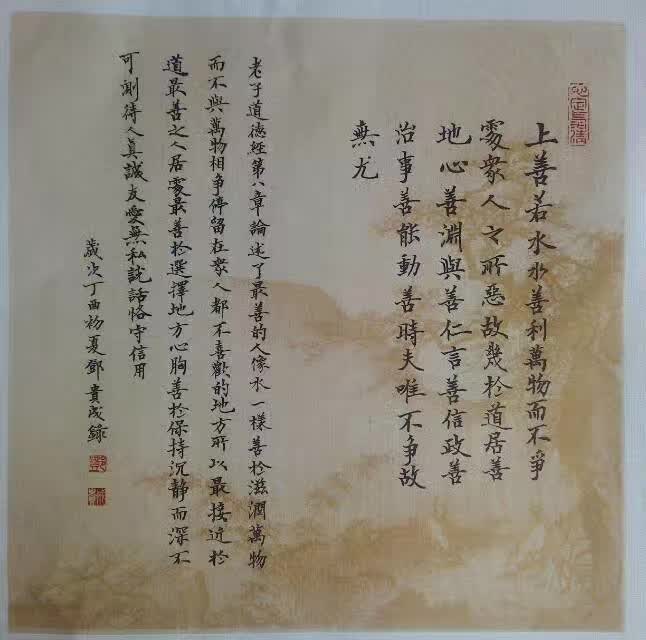 上善若水水善利萬物而不爭
處衆人之所惡故幾於道居善
地心善淵與善仁言善信政善
治事善能動善時夫唯不爭故
無尤
老子道德經第八章論述了最善的人像水一樣善於滋潤萬物
而不與萬物相爭停留在衆人都不喜歡的地方所以最接近於
道最善之人居處最善於選擇地方心胸善於保持沉静而深不
可測待人真誠友愛無私說話恪守信用
歲次丁酉初夏鄧貴成錄